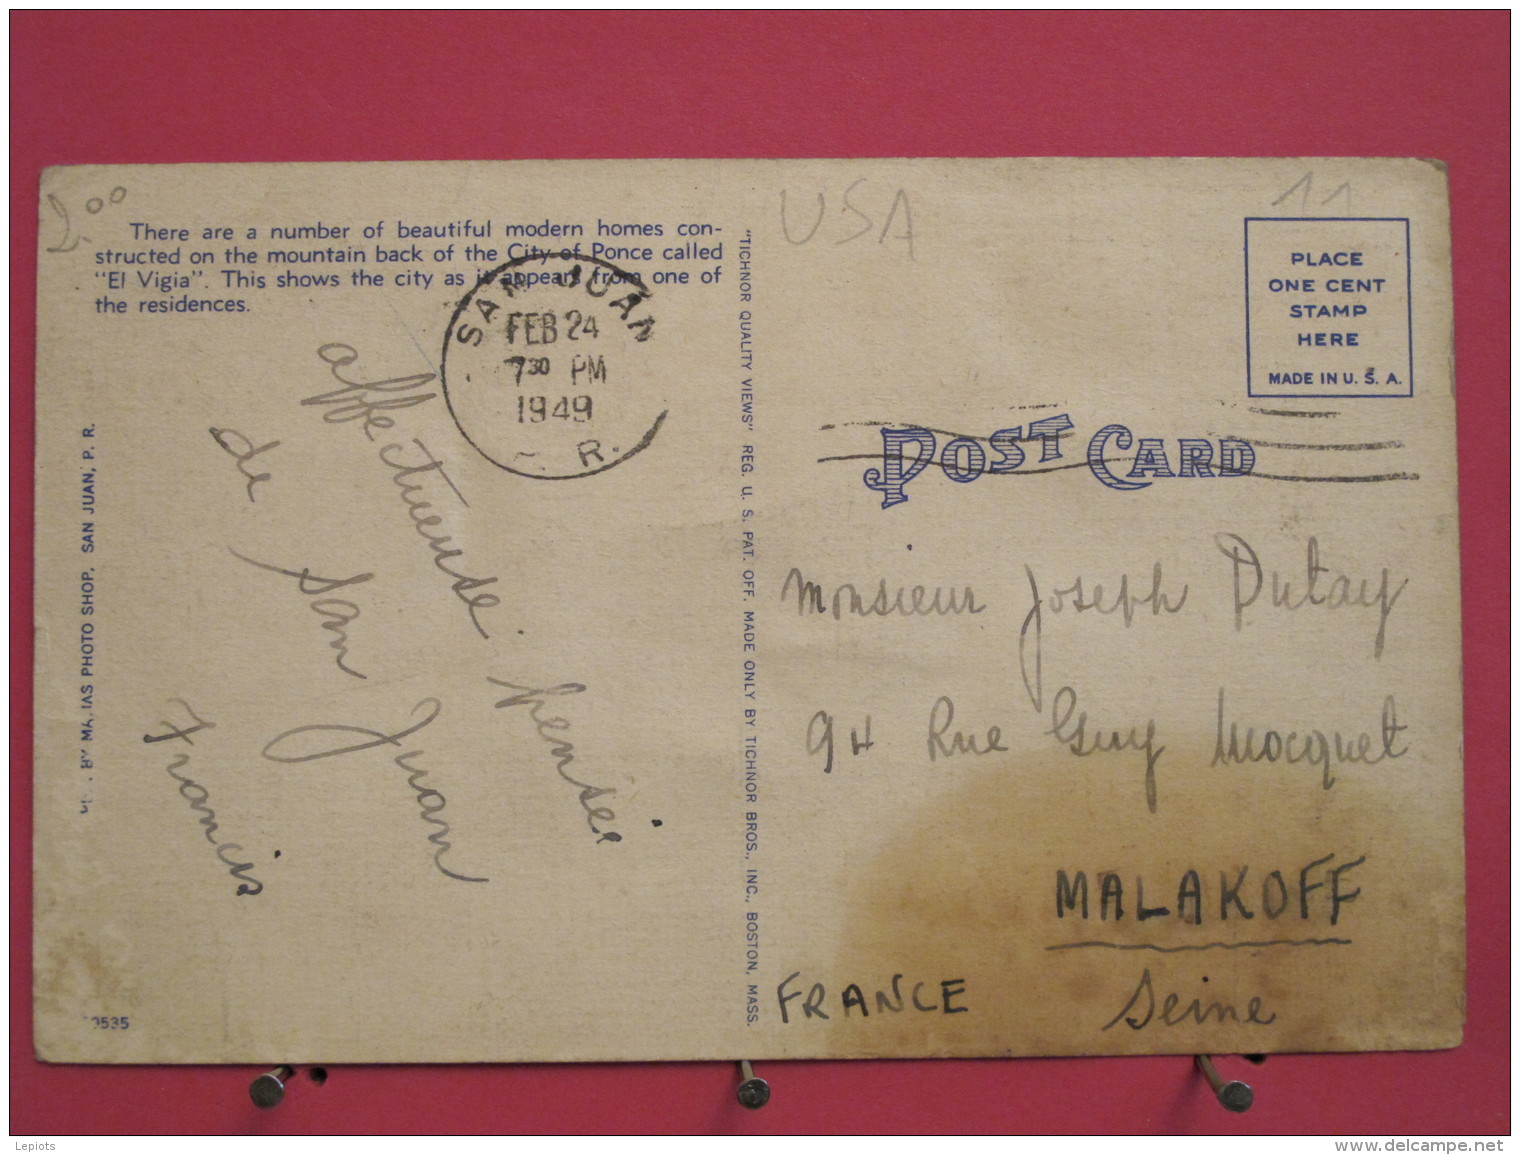 2.00
There are a number of beautiful modern homes con-
structed on the mountain back of the City of Ponce called
"El Vigia". This shows the city as it appears from one of
the residences.
SAN JUAN
FEB 24
7 30 PM
1949
R.
affectueuse pensée
de San Juan
Francis
BY MATIAS PHOTO SHOP, SAN JUAN, P. R.
3535
"TICHNOR QUALITY VIEWS" REG. U. S. PAT. OFF. MADE ONLY BY TICHNOR BROS., INC., BOSTON, MASS.
USA
11
PLACE
ONE CENT
STAMP
HERE
MADE IN U. S. A.
POST CARD
Monsieur Joseph Dutay
94 Rue Guy Mocquet
MALAKOFF
FRANCE Seine
Lepiots
www.delcampe.net